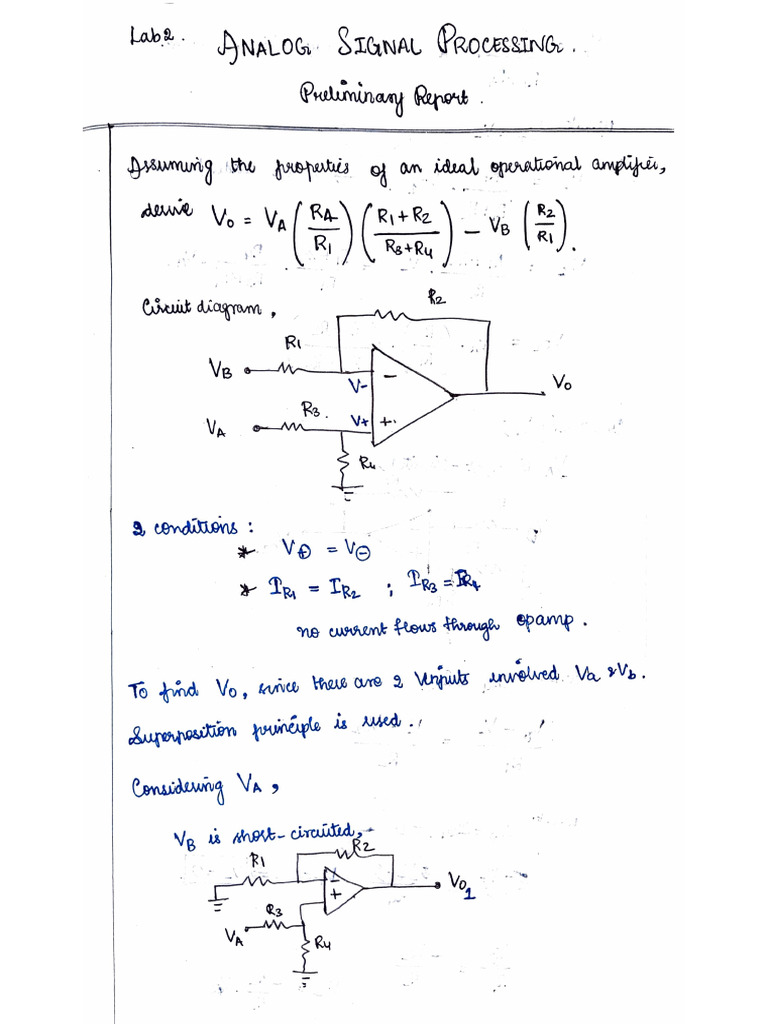 Lab 2. ANALOG SIGNAL PROCESSING.
Preliminary Report.
Assuming the properties of an ideal operational amplifier,
derive V0 = VA (RA/R1) (R1+R2/R3+R4) - VB (R2/R1).
Circuit diagram,
R2
R1
VB
V-
V0
R3.
V+
VA
R4
2 conditions:
* V⊕ = V⊖
* IR1 = IR2 ; IR3 = IR4
no current flows through opamp.
To find V0, since there are 2 Vinputs involved Va & Vb.
Superposition principle is used.
Considering VA,
VB is short-circuited,
R2
R1
V01
R3
VA
R4